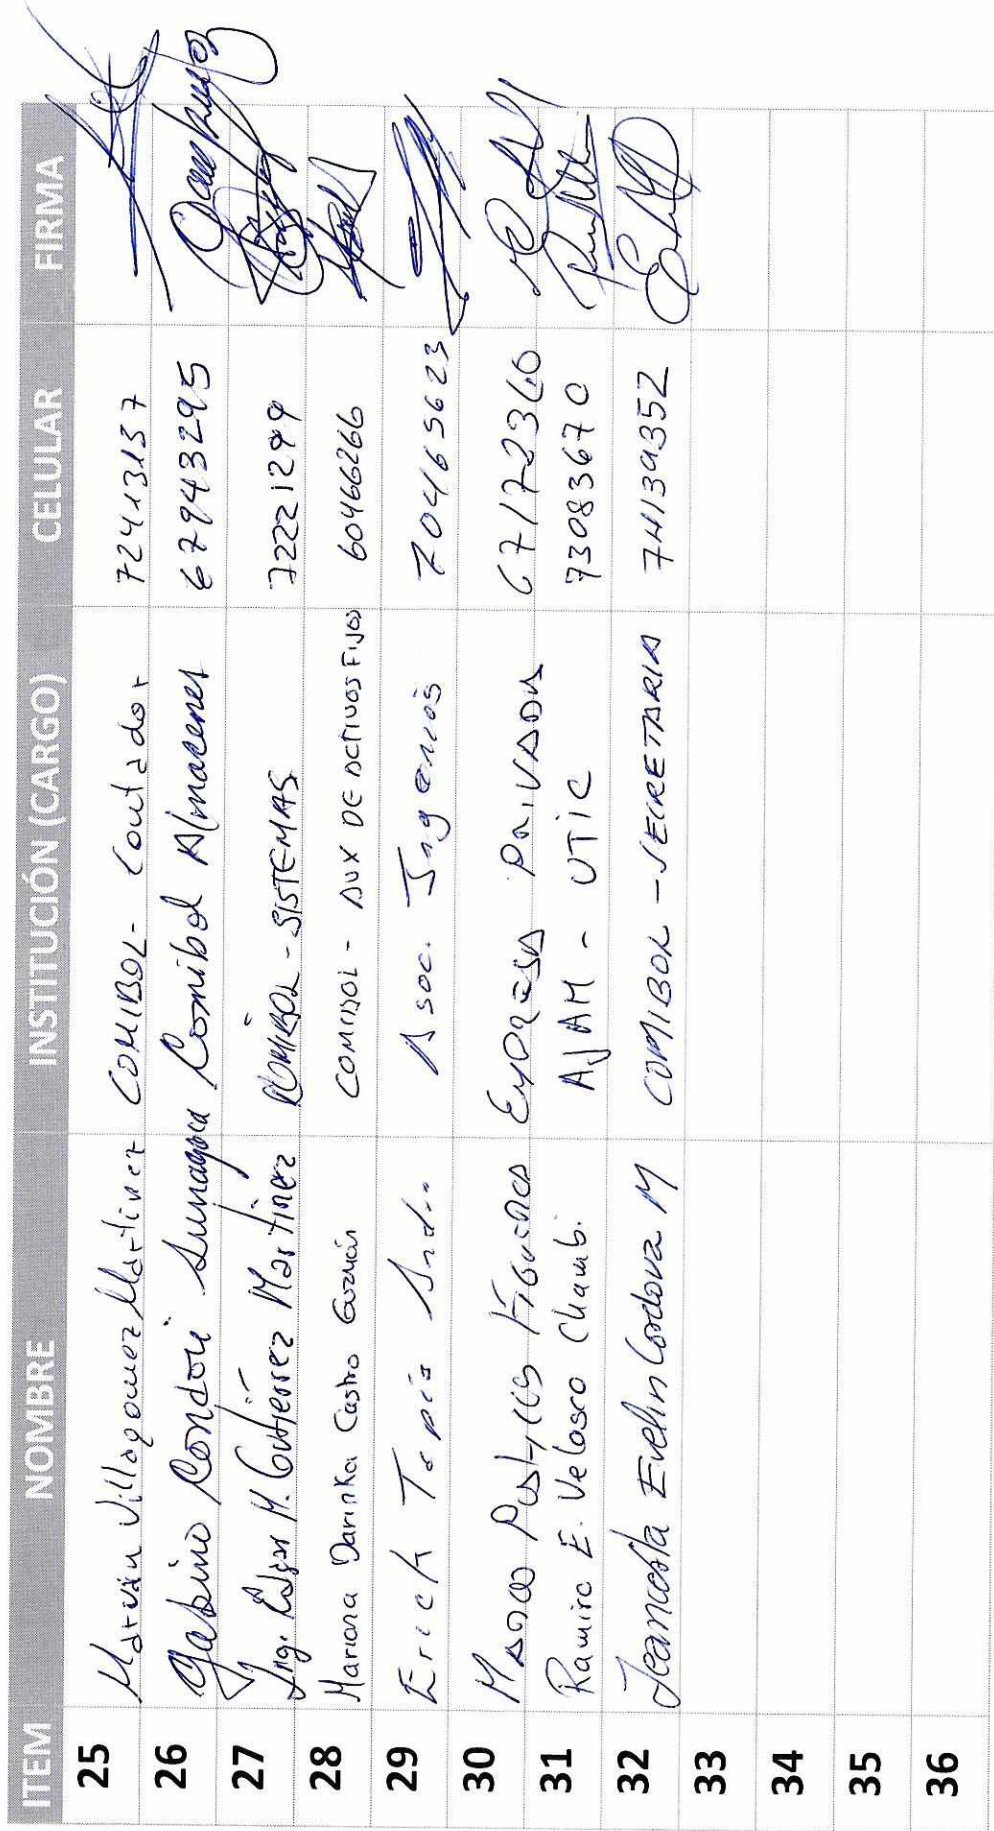 ITEM NOMBRE INSTITUCIÓN (CARGO) CELULAR FIRMA
25 Marvin Villagomez Martinez COMIBOL - Contador 72413137
26 Gabino Condori Sunagua Comibol Almacenes 67943295
27 Ing. Edgar M. Gutierrez Martinez COMIBOL - SISTEMAS 72221299
28 Mariana Darinka Castro Guzmán COMIBOL - AUX DE ACTIVOS FIJOS 60466266
29 Erick Tapia Asoc. Ingenios 70465623
30 Marco EMPRESA PRIVADA 67172360
31 Ramiro E. Velasco Chambi. AJAM - UTIC 73083670
32 Evelin Cordova M COMIBOL - SECRETARIA 74139352
33
34
35
36